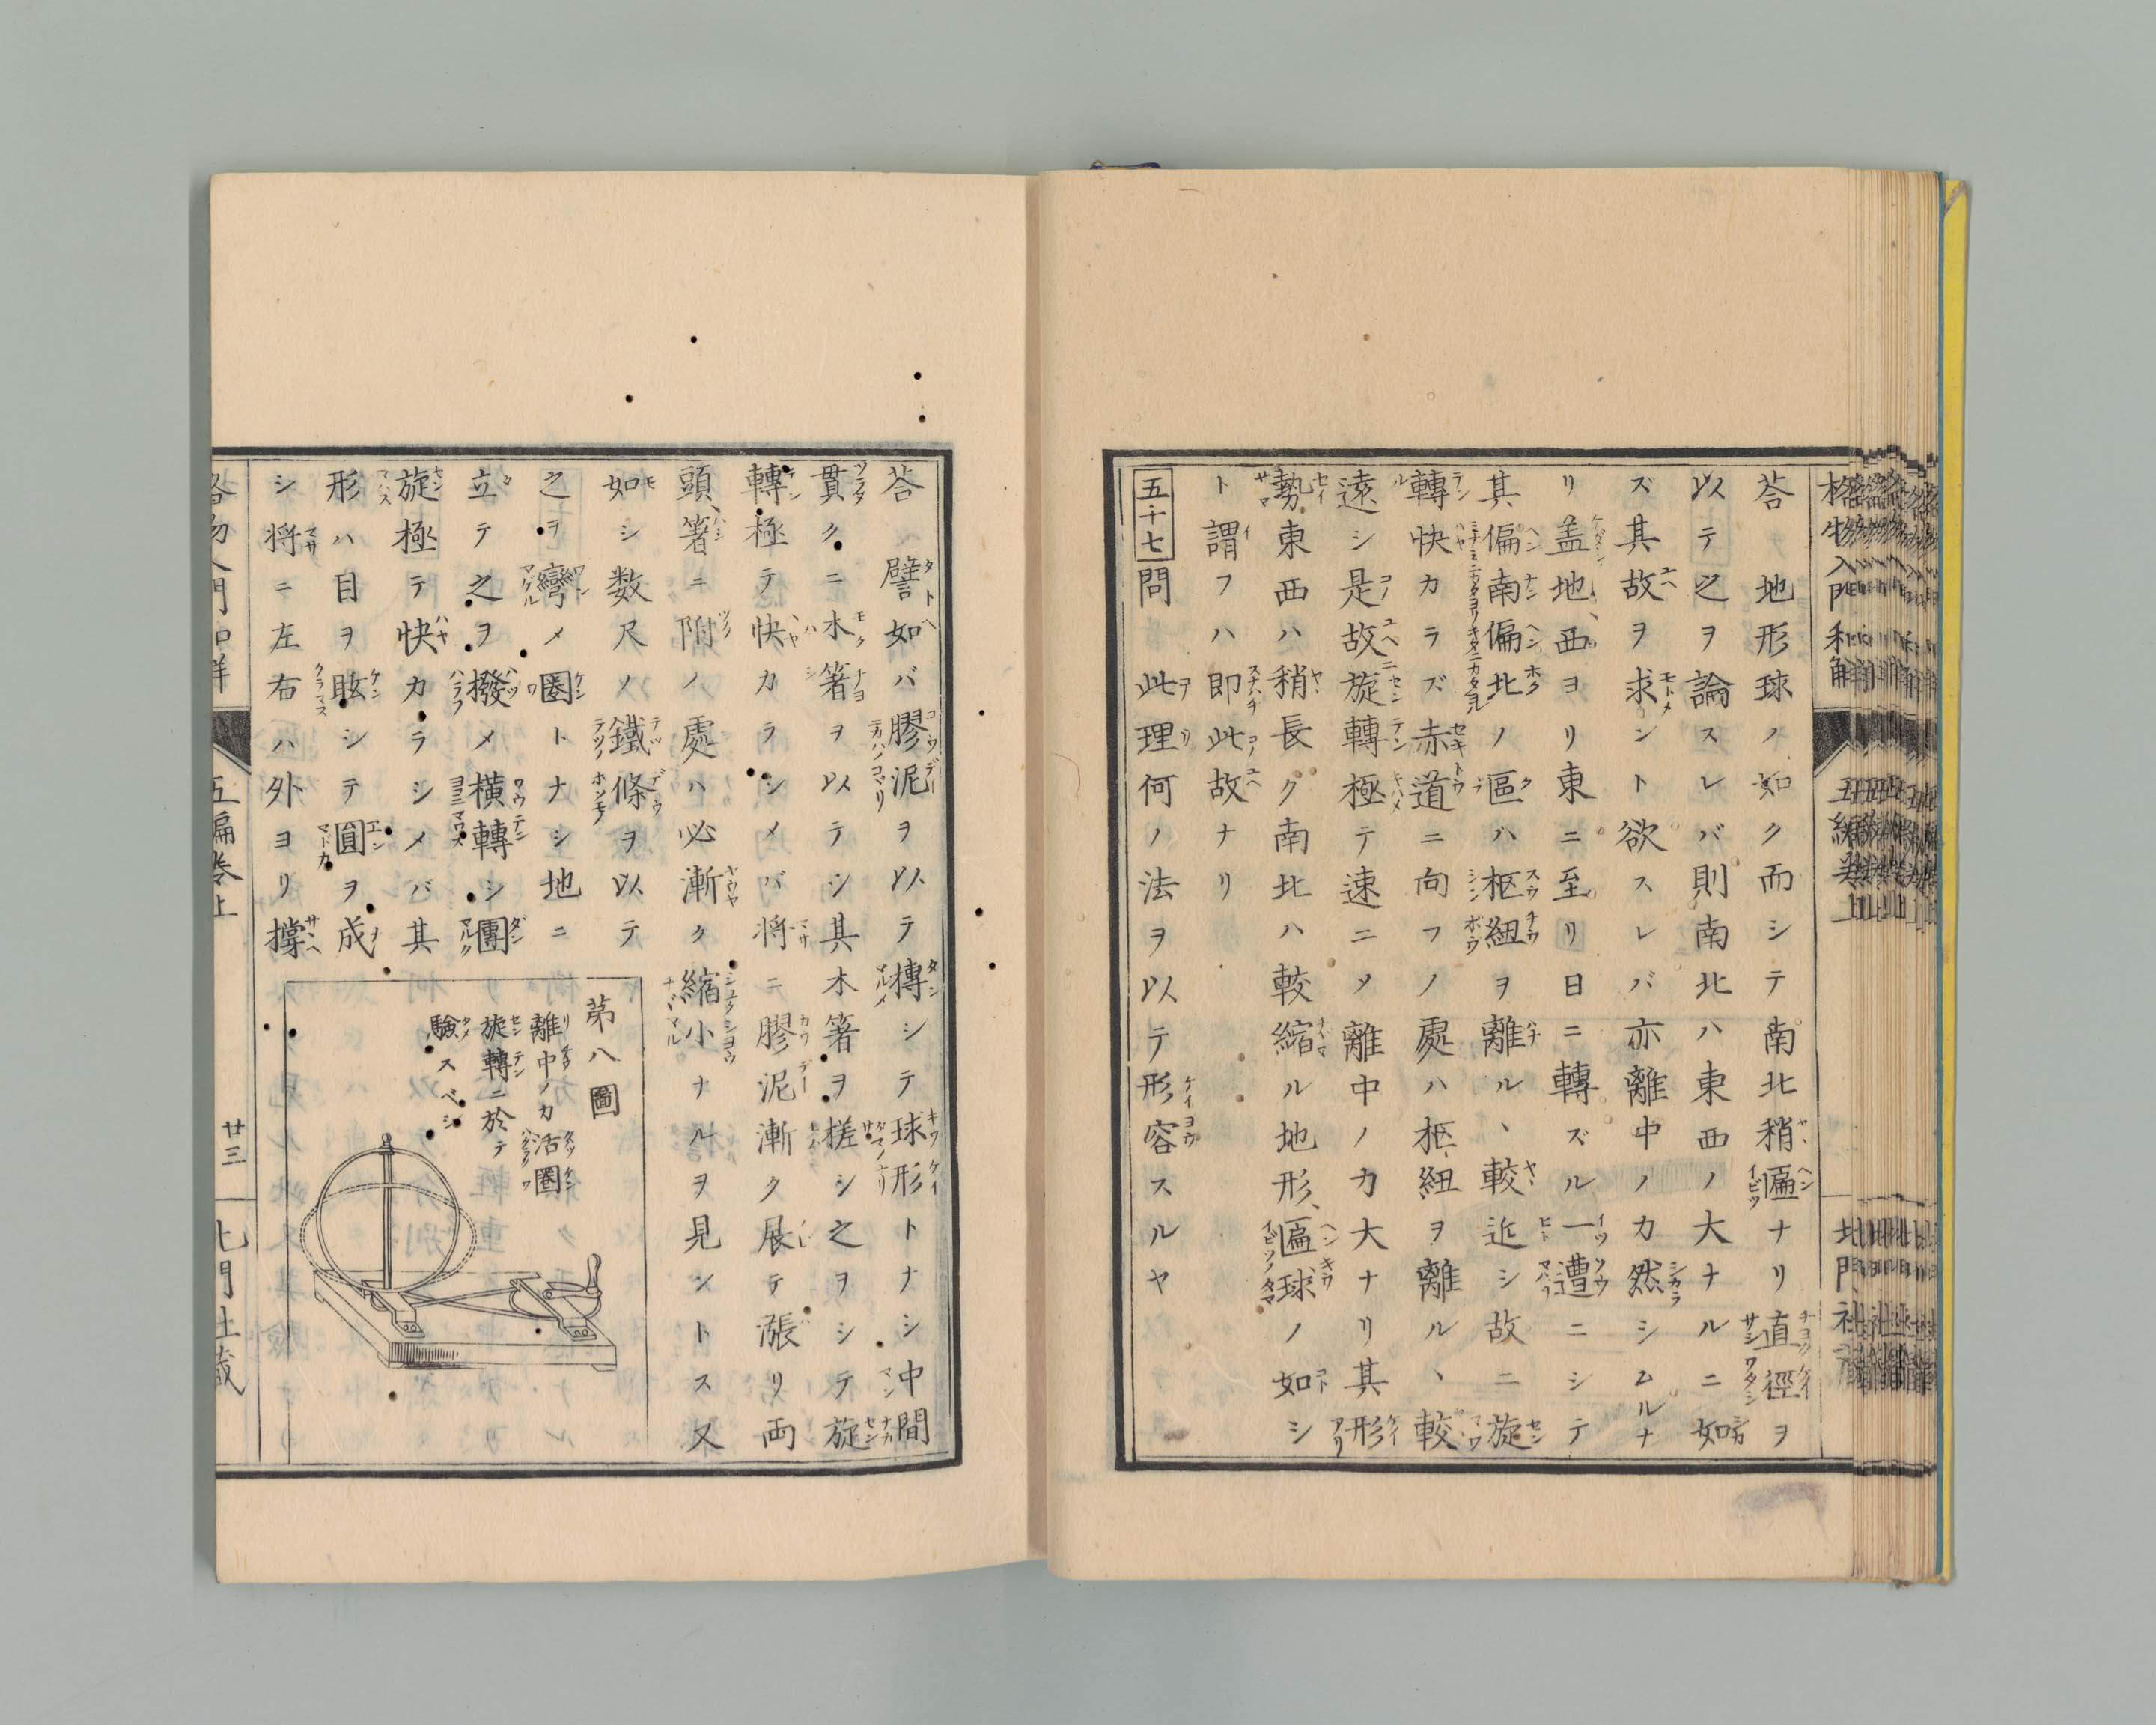 格物入門和解
五編巻上
北門社
荅 地形球ノ如ク而シテ南北稍匾ナリ直徑ヲ
以テ之ヲ論スレバ則南北ハ東西ノ大ナルニ如
ズ其故ヲ求ント欲スレバ亦離中ノ力然シムルナ
リ盖地西ヨリ東ニ至リ日ニ轉ズル一遭ニシテ
其偏南偏北ノ區ハ枢紐ヲ離ルヽ較近シ故ニ旋
轉快カラズ赤道ニ向フノ處ハ枢紐ヲ離ルヽ較
遠シ是故旋轉極テ速ニメ離中ノ力大ナリ其形
勢東西ハ稍長ク南北ハ較縮ル地形匾球ノ如シ
ト謂フハ即此故ナリ
五十七 問 此理何ノ法ヲ以テ形容スルヤ
荅 譬如バ膠泥ヲ以テ摶シテ球形トナシ中間
貫クニ木箸ヲ以テシ其木箸ヲ搓シ之ヲシテ旋
轉極テ快カラシメバ将ニ膠泥漸ク展テ漲リ両
頭箸ニ附ノ處ハ必漸ク縮小ナルヲ見ントス又
如シ数尺ノ鐵條ヲ以テ
之ヲ彎メ圏トナシ地ニ
立テ之ヲ撥メ横轉シ團
旋極テ快カラシメバ其
形ハ目ヲ眩シテ圓ヲ成
シ将ニ左右ハ外ヨリ撐
第八圖
離中ノ力活圏
旋轉ニ於テ
験スベシ
格物入門和解
五編巻上
廿三
北門社蔵